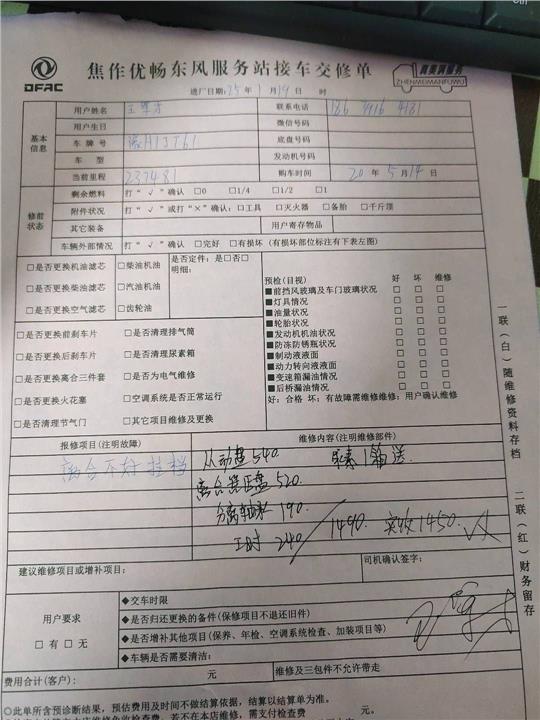 DFAC
焦作优畅东风服务站接车交修单
真美满服务
ZHENMEIMANFUWU
进厂日期:25年1月19日 时
基本信息
用户姓名
联系电话 186
用户生日
微信号码
车牌号
底盘号码
车型
发动机号码
当前里程 237481
购车时间 20年5月14日
修前状态
剩余燃料 打“√”确认 □0 □1/4 □1/2 □1
附件状况 打“√”或打“×”确认:□工具 □灭火器 □备胎 □千斤顶
其它装备
用户寄存物品
车辆外部情况 打“√”确认 □完好 □有损坏(有损坏部位标注有下表左图)
□是否更换机油滤芯 □柴油机油
是否定件:是□否□
明细:
□是否更换柴油滤芯 □汽油机油
□是否更换空气滤芯 □齿轮油
□是否更换前刹车片 □是否清理排气筒
□是否更换后刹车片 □是否清理尿素箱
□是否更换离合三件套 □是否为电气维修
□是否更换火花塞 □空调系统是否正常运行
□是否清理节气门 □其它项目维修及更换
预检(目视) 好 坏 维修
■前挡风玻璃及车门玻璃状况 □ □ □
■灯具情况 □ □ □
■油量状况 □ □ □
■轮胎状况 □ □ □
■发动机机油状况 □ □ □
■防冻防锈瓶状况 □ □ □
■制动液液面 □ □ □
■动力转向液液面 □ □ □
■变速箱漏油情况 □ □ □
■后桥漏油情况 □ □ □
好:合格 坏:有故障需维修维修:用户确认维修
报修项目(注明故障)
维修内容(注明维修部件)
离合不好挂档
从动盘540. 尿素1箱送
离合器压盘520.
分离轴承190.
工时240 / 1490. 实收1450.
建议维修项目或增补项目:
司机确认签字:
用户要求
□有□无
◆交车时限
◆是否归还更换的备件(保修项目不退还旧件)
◆是否增补其他项目(保养、年检、空调系统检查、加装项目等)
◆车辆是否需要清洁:
费用合计(客户): 元
维修及三包件不允许带走
◎此单所含预诊断结果,预估费用及时间不做结算依据,结算以结算单为准。
一联(白)随维修资料存档
二联(红)财务留存